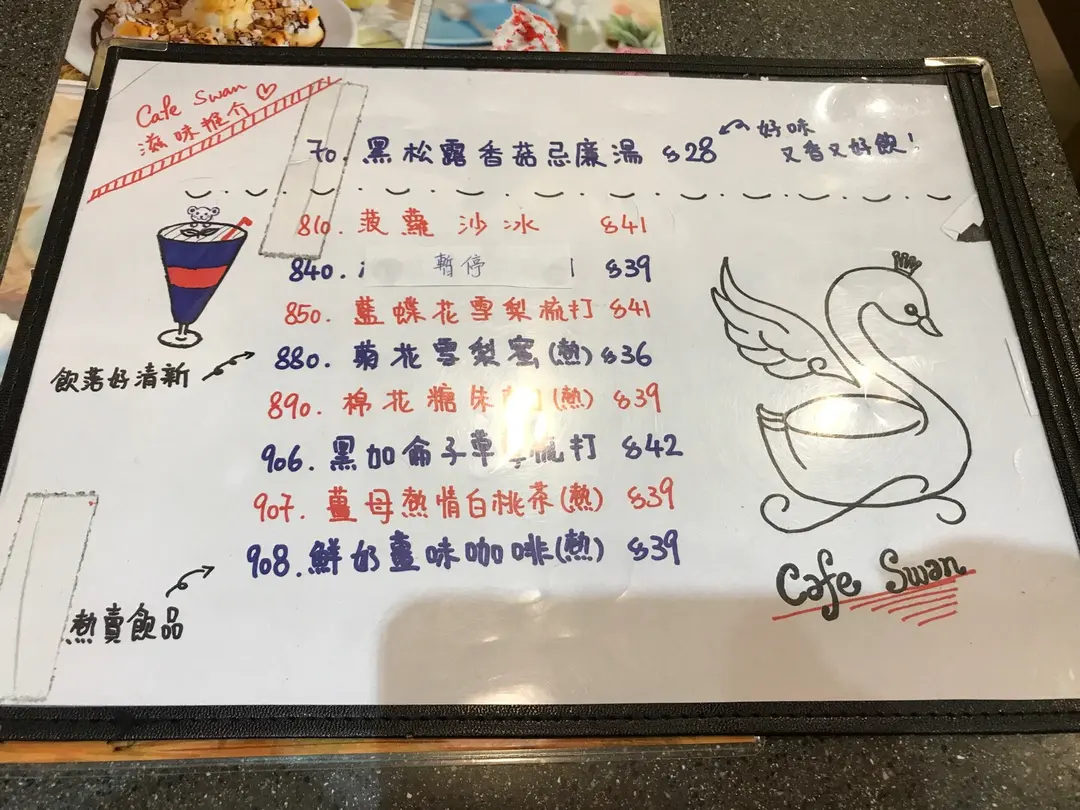 Cafe Swan ♡
滋味推介
70. 黑松露香菇忌廉湯 $28
好味
又香又好飲！
810. 菠蘿沙冰 $41
840. 暫停 $39
850. 藍蝶花雪梨梳打 $41
880. 菊花雪梨蜜(熱) $36
飲落好清新
890. 棉花糖朱 (熱) $39
906. 黑加侖子草 梳打 $42
907. 薑母熱情白桃茶(熱) $39
908. 鮮奶薑味咖啡(熱) $39
熱賣飲品
Cafe Swan